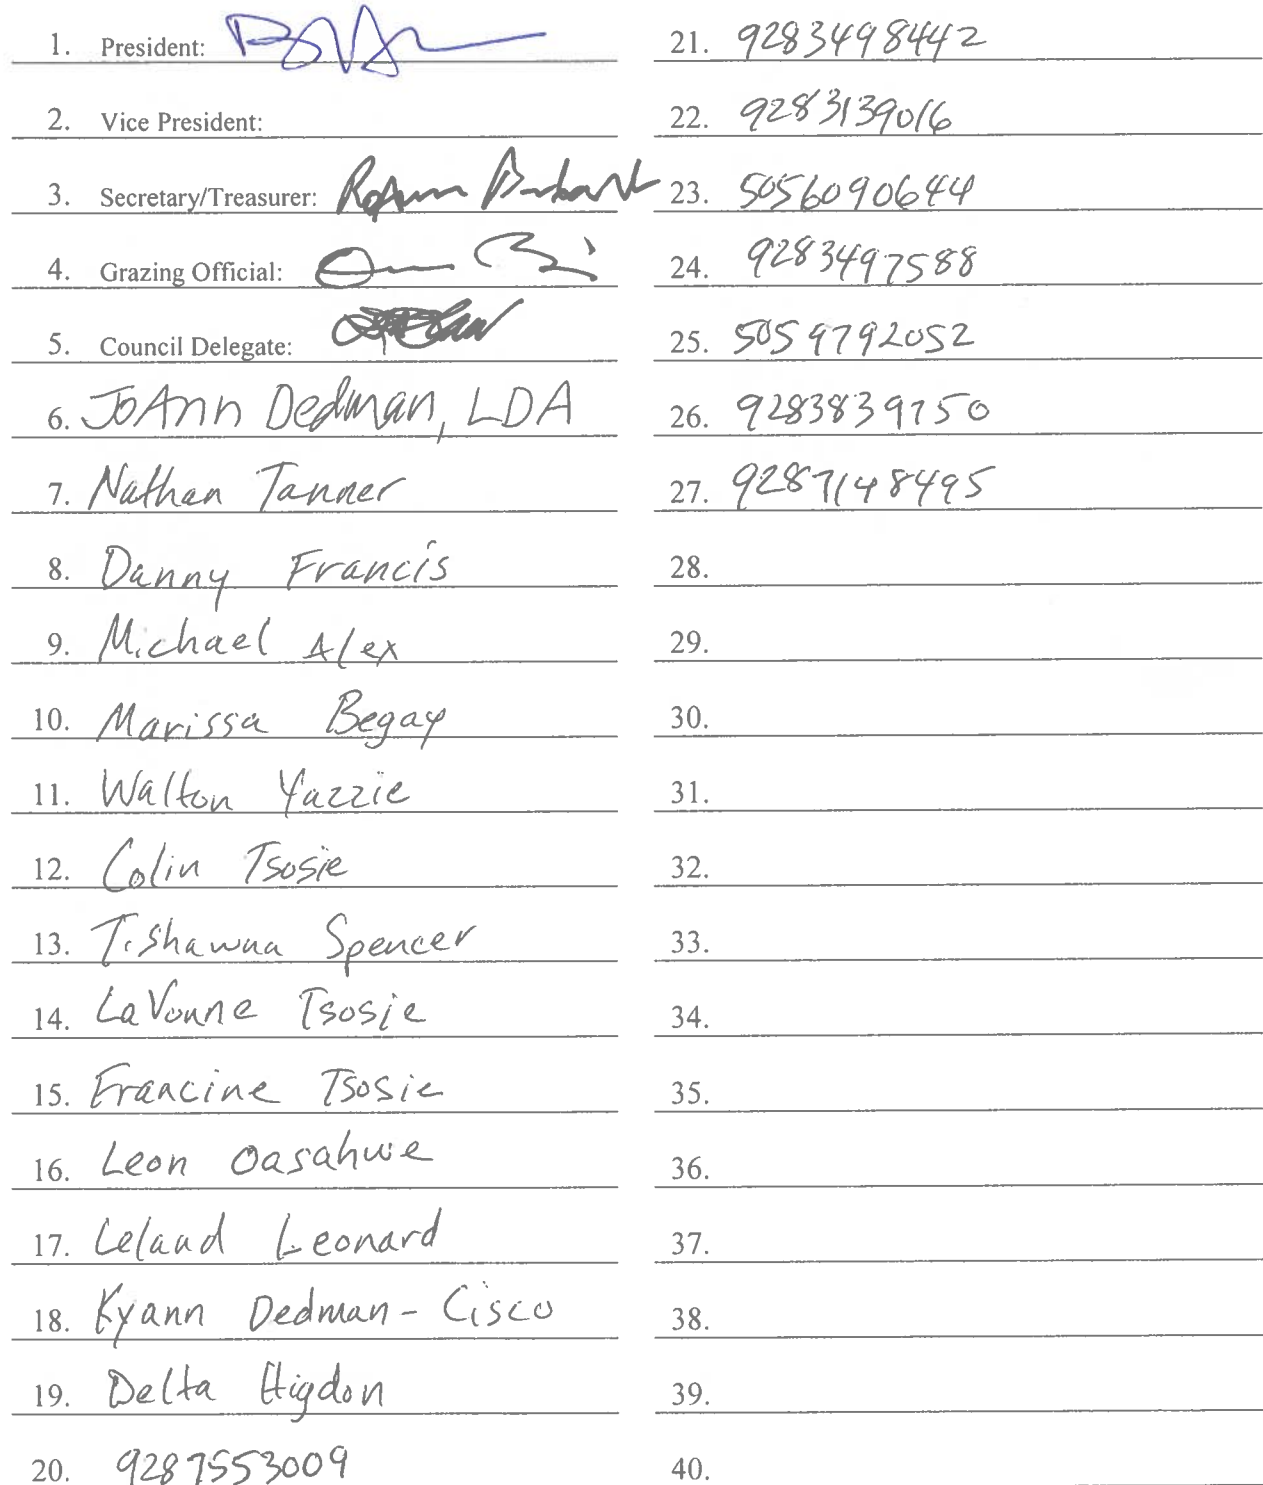 1. President:
2. Vice President:
3. Secretary/Treasurer: RoAnn Burbank
4. Grazing Official:
5. Council Delegate:
6. JoAnn Dedman, LDA
7. Nathan Tanner
8. Danny Francis
9. Michael Alex
10. Marissa Begay
11. Walton Yazzie
12. Colin Tsosie
13. T. Shawna Spencer
14. LaVonne Tsosie
15. Francine Tsosie
16. Leon Oasahwe
17. Leland Leonard
18. Kyann Dedman-Cisco
19. Delta Higdon
20. 9287553009
21. 9283498442
22. 9283139016
23. 5056090644
24. 9283497588
25. 5059792052
26. 9283839750
27. 9287148495
28.
29.
30.
31.
32.
33.
34.
35.
36.
37.
38.
39.
40.